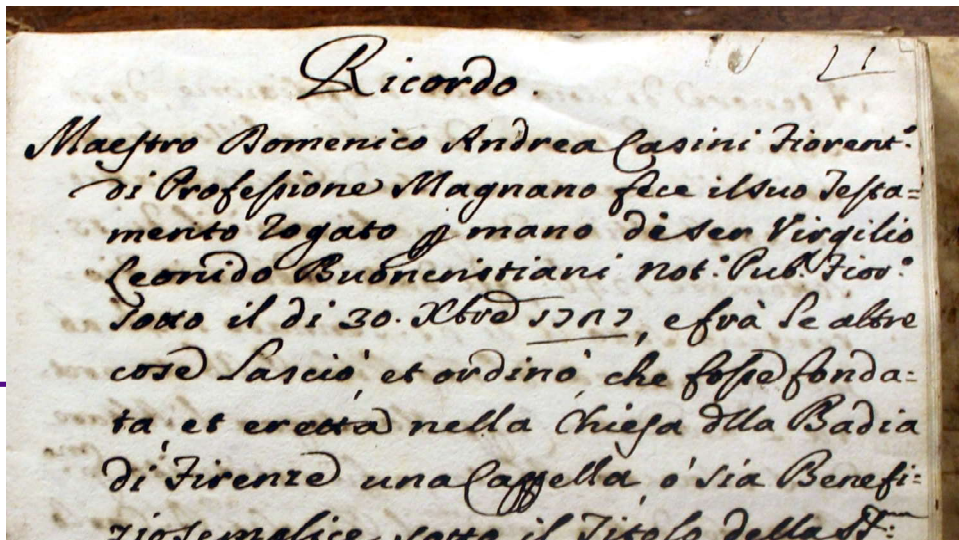 21
Ricordo.
Maestro Domenico Andrea Casini Fiorent.º
di Professione Magnano fece il suo Testa=
mento rogato p mano di ser Virgilio
Leonido Buoncristiani Not.º Pub.º Fior.º
sotto il di 30. Xbre 1717, e frà le altre
cose Lasciò, et ordinò, che fosse fonda=
ta, et eretta nella Chiesa dlla Badia
di Firenze una Cappella ó sia Benefi=
zio semplice sotto il Titolo della SS.